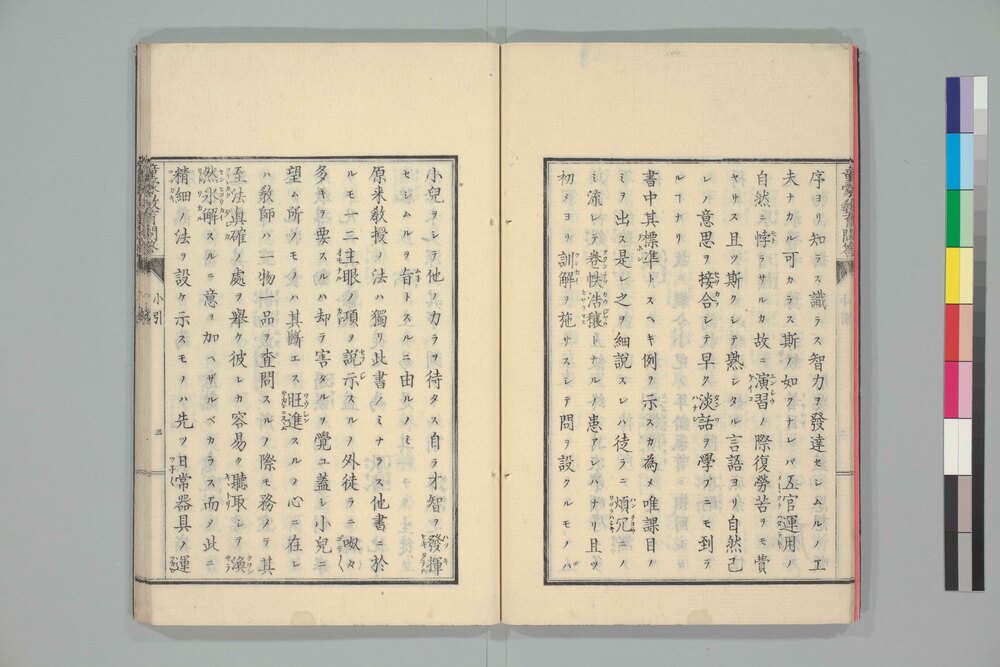 序ヨリ知ラス識ラス智力ヲ發達セシムルノ工
夫ナカル可カラス斯ノ如クナレバ五官運用ノ
自然ニ悖ラサルカ故ニ演習ノ際復勞苦ヲモ費
ヤサス且ツ斯クシテ熟シタル言語ヨリノ自然己
レノ意思ヲ接合シテ早ク淡話ヲ學ブニモ到ラ
ルヽナリ
書中其標準トスヘキ例ヲ示スカ為メ唯課目ノ
ミヲ出ス是レ之ヲ細說スレハ徒ラニ煩冗ニ
ミ流レテ卷帙浩穰トナルノ患アレハナリ且ツ
初メヨリ訓解ヲ施サスシテ問ヲ設クルモノハ
小引
小兒ヲシテ他ノ力ヲ待タス自ラ才智ヲ發揮
セシムルヲ旨トスルニ由ルノミ
原来敎授ノ法ハ獨リ此書ノミナラス他書ニ於
ルモ一二主眼ノ項ヲ說示スルノ外徒ラニ呶カ
多キヲ要スルハ却ラ害タルヲ覺ユ盖シ小兒ニ
望ム所ノモノハ其斷エス旺進スルノ心ニ在レ
ハ敎師ハ一物一品ヲ査問スルノ際モ務メラ其
至法眞確ノ處ヲ舉ケ彼レカ容易ク聽取シテ渙
然氷解スルニ意ヲ加ハザルベカラス而メ此ニ
精細ノ法ヲ設ケ示スモノハ先ツ日常器具ノ運
童蒙敎育問答
小引
三